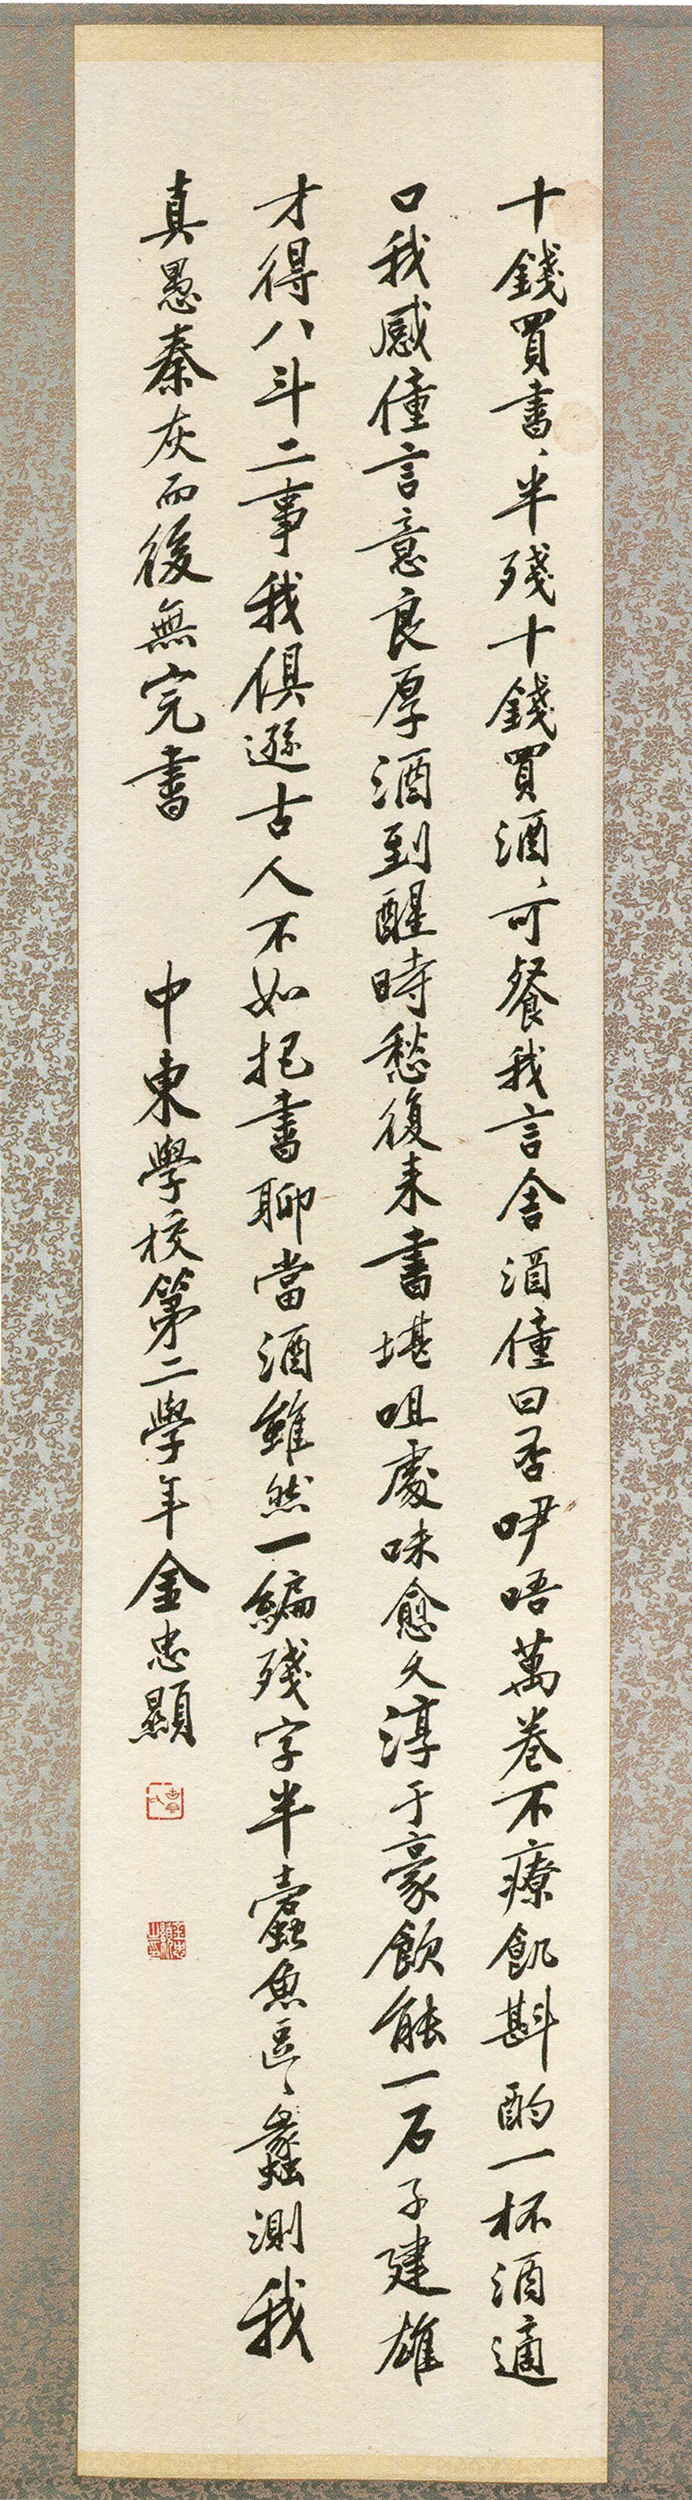 十錢買書〻半殘十錢買酒〻可餐我言舍酒僮曰否咿唔萬卷不療飢斟酌一杯酒適
口我感僮言意良厚酒到醒時愁復來書堪咀處味愈久淳于豪飲能一石子建雄
才得八斗二事我俱遜古人不如把書聊當酒雖然一編殘字半蠹魚區〻蠡測我
真愚秦灰而後無完書
中東學校第二學年金忠顯